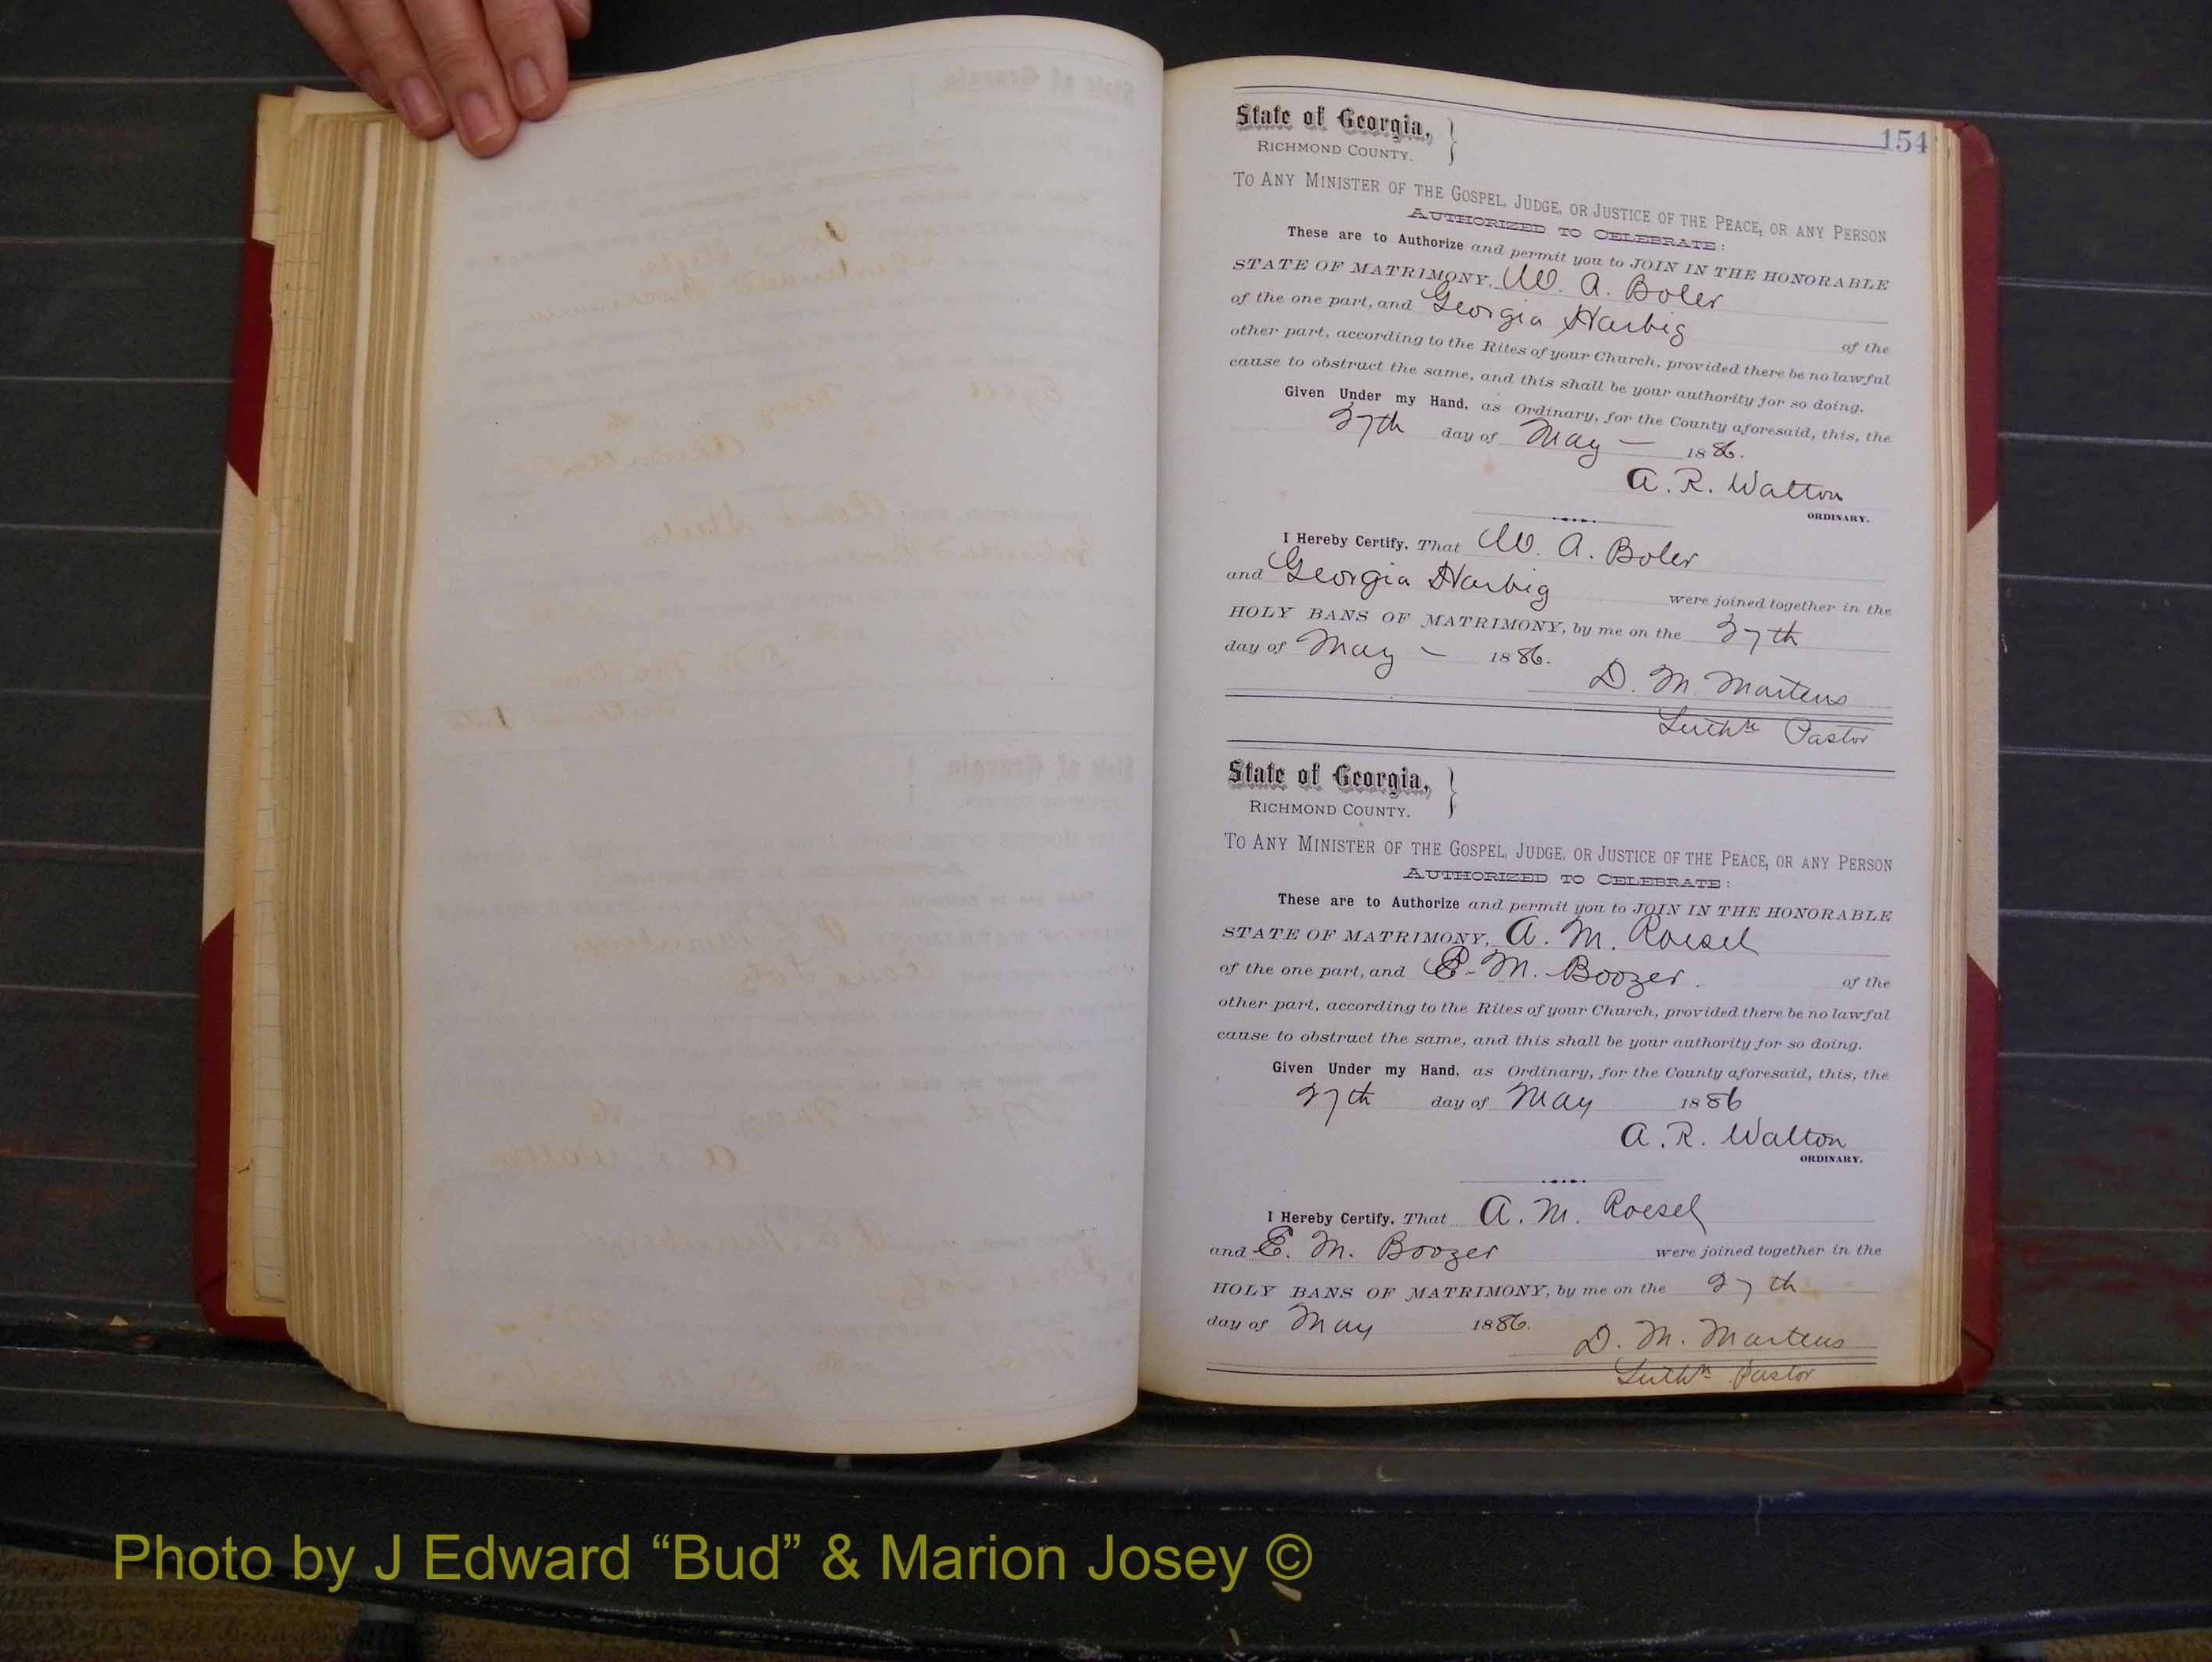 154
State of Georgia,
RICHMOND COUNTY.
TO ANY MINISTER OF THE GOSPEL, JUDGE, OR JUSTICE OF THE PEACE, OR ANY PERSON
AUTHORIZED TO CELEBRATE:
These are to Authorize and permit you to JOIN IN THE HONORABLE
STATE OF MATRIMONY, W. A. Boler
of the one part, and Georgia Harbig of the
other part, according to the Rites of your Church, provided there be no lawful
cause to obstruct the same, and this shall be your authority for so doing.
Given Under my Hand, as Ordinary, for the County aforesaid, this, the
27th day of May — 1886.
A. R. Walton
ORDINARY.
I Hereby Certify, That W. A. Boler
and Georgia Harbig were joined together in the
HOLY BANS OF MATRIMONY, by me on the 27th
day of May — 1886.
D. M. Martens
Luthn Pastor
State of Georgia,
RICHMOND COUNTY.
TO ANY MINISTER OF THE GOSPEL, JUDGE, OR JUSTICE OF THE PEACE, OR ANY PERSON
AUTHORIZED TO CELEBRATE:
These are to Authorize and permit you to JOIN IN THE HONORABLE
STATE OF MATRIMONY, A. M. Roesel
of the one part, and E. M. Boozer. of the
other part, according to the Rites of your Church, provided there be no lawful
cause to obstruct the same, and this shall be your authority for so doing.
Given Under my Hand, as Ordinary, for the County aforesaid, this, the
27th day of May 1886
A. R. Walton
ORDINARY.
I Hereby Certify, That A. M. Roesel
and E. M. Boozer were joined together in the
HOLY BANS OF MATRIMONY, by me on the 27th
day of May 1886.
D. M. Martens
Luthn Pastor
Photo by J Edward “Bud” & Marion Josey ©